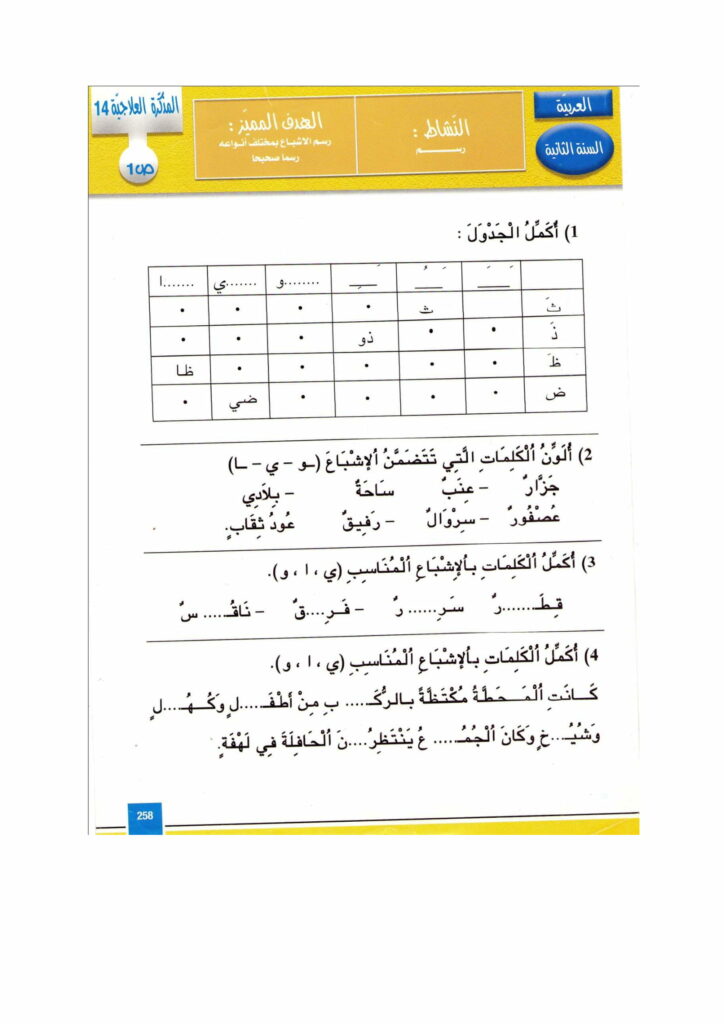 العربية
السنة الثانية
النشاط :
رسم
الهدف المميّز :
رسم الاشباع بمختلف أنواعه
رسما صحيحا
المذكّرة العلاجيّة 14
ص1
1) أُكَمِّلُ الْجَدْوَلَ :
........و .......ي .......ا
ثَ ث
ذَ ذو
ظَ ظا
ض ضي
2) أُلَوِّنُ اُلْكَلِمَاتِ الَّتِي تَتَضَمَّنُ اُلإِشْبَاعَ (ـو - ي - ـا)
جَزَّارٌ - عِنَبٌ سَاحَةٌ - بِلاَدِي
عُصْفُورٌ - سِرْوَالٌ - رَفِيقٌ عُودُ ثِقَابٍ.
3) أُكَمِّلُ اُلْكَلِمَاتِ بِاُلإِشْبَاعِ اُلْمُنَاسِبِ (ي ، ا ، و).
قِطَـ.......رٌ سَرِ...... رٌ - فَرِ....قٌ - نَاقُـ..... سٌ
4) أُكَمِّلُ اُلْكَلِمَاتِ بِاُلإِشْبَاعِ اُلْمُنَاسِبِ (ي ، ا ، و).
كَانَتِ اُلْمَحَطَّةُ مُكْتَظَّةً بِالرُّكَـ..... بِ مِنْ أَطْفَـ.....لٍ وَكُهُـ....لٍ
وَشُيُـ...خٍ وَكَانَ اُلْجُمُـ..... عُ يَنْتَظِرُ....نَ اُلْحَافِلَةَ فِي لَهْفَةٍ.
258